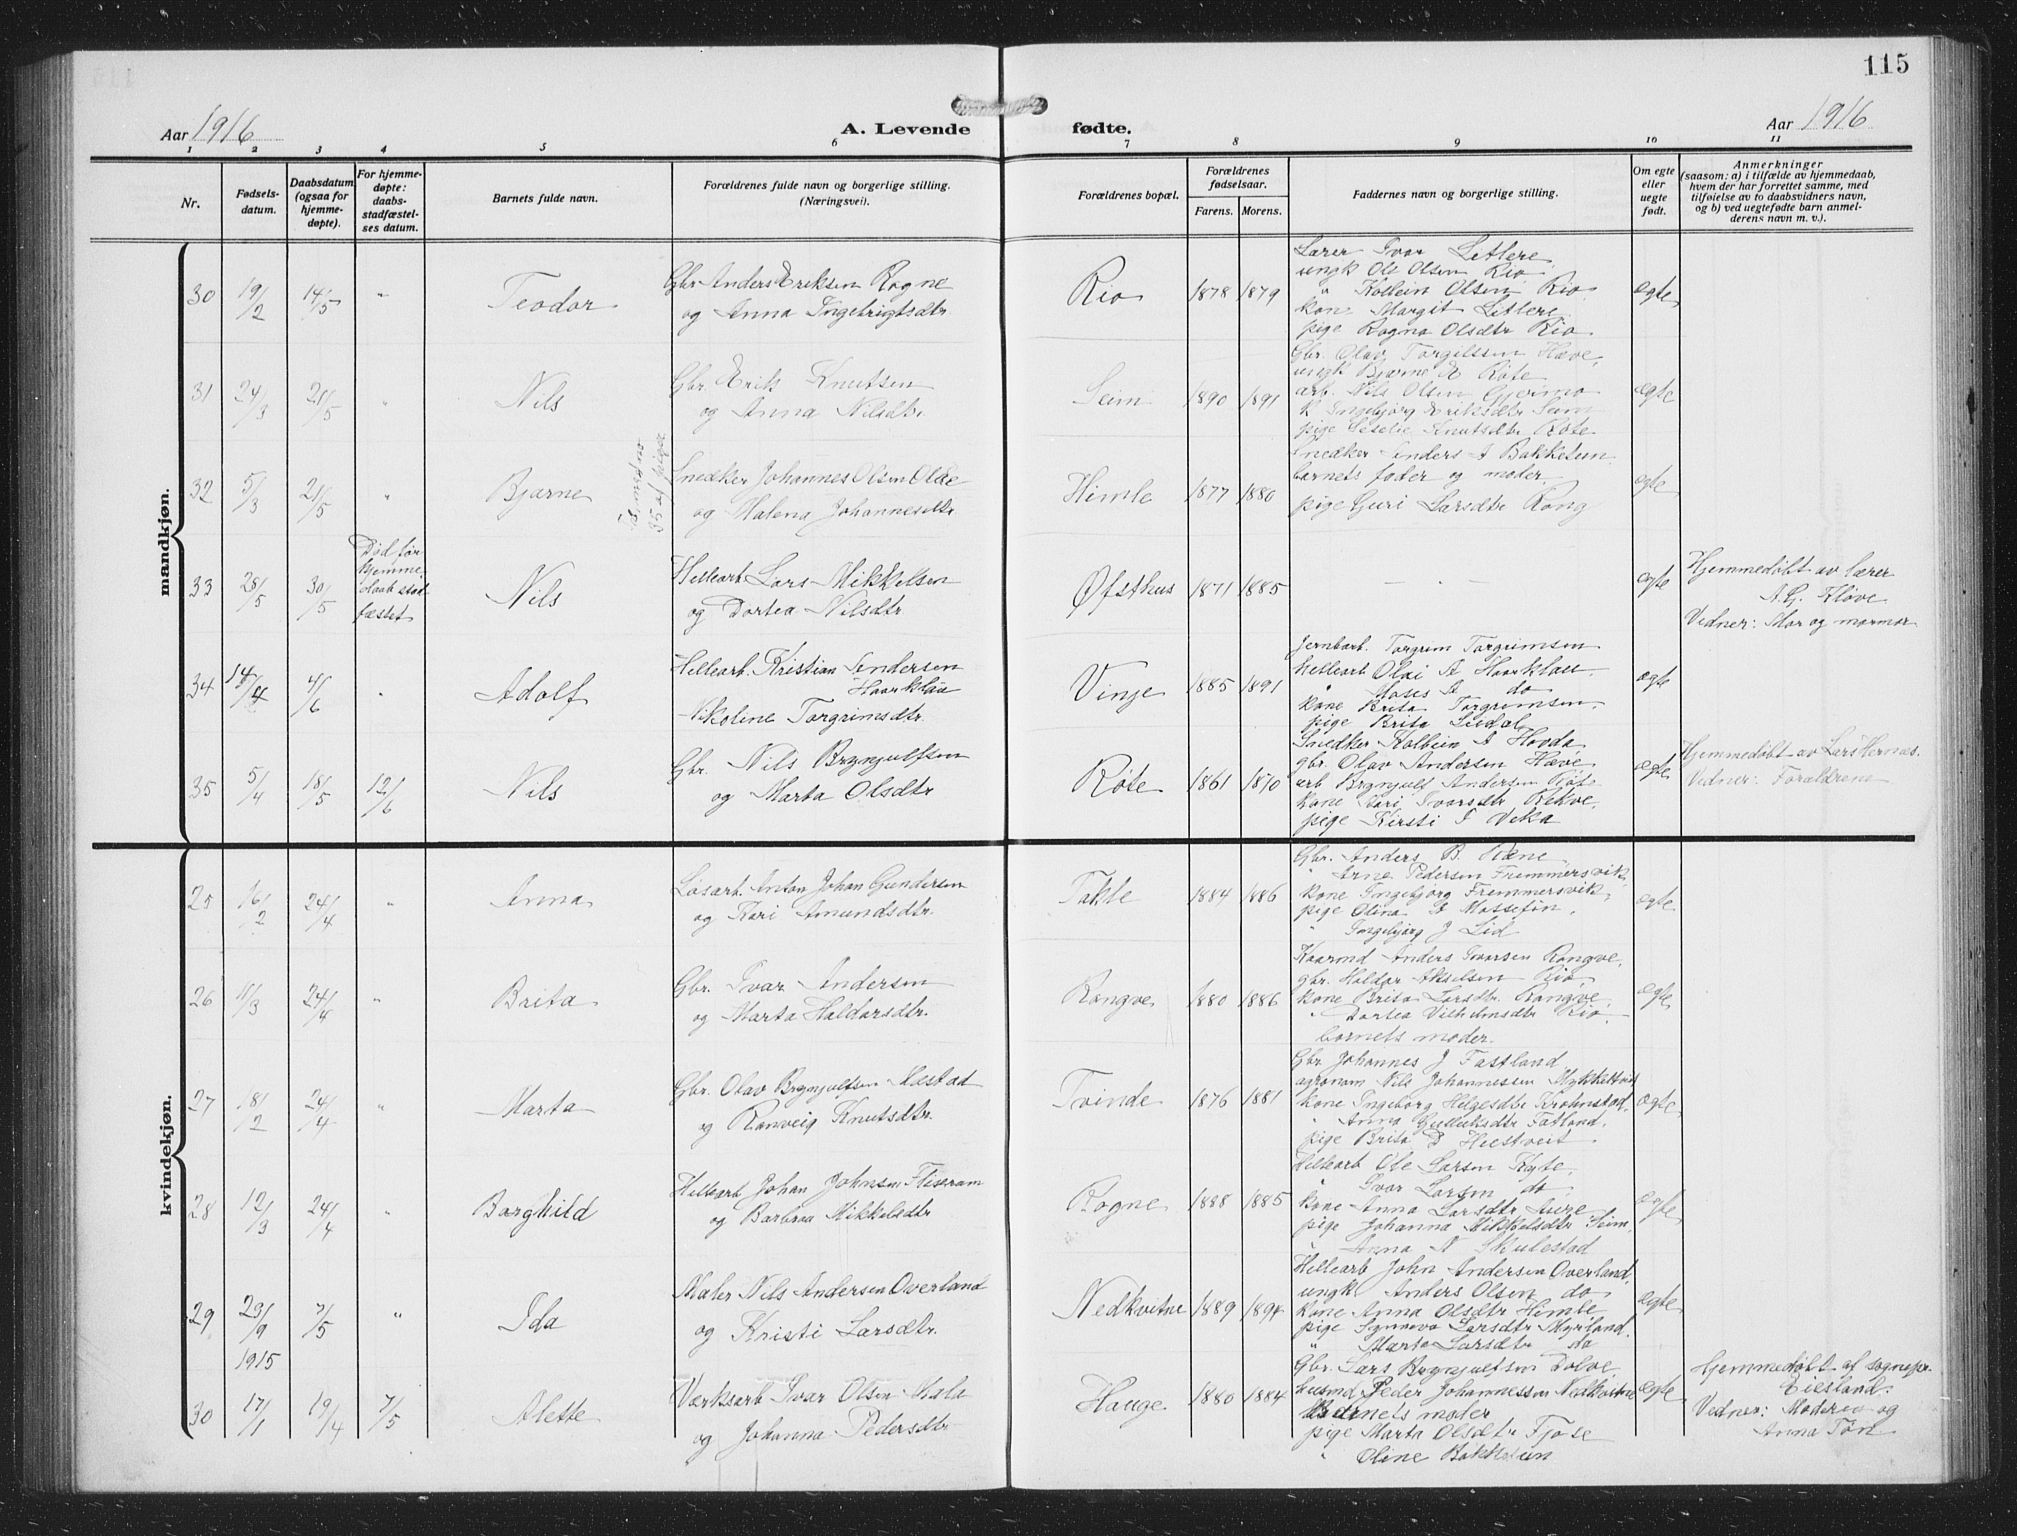 115
Aar 1916
A. Levende fødte.
Aar 1916
1 2 3 4 5 6 7 8 9 10 11
Nr.
Fødsels-
datum.
Daabsdatum
(ogsaa for
hjemme-
døpte).
For hjemme-
døpte:
daabs-
stadfæstel-
ses datum.
Barnets fulde navn.
Forældrenes fulde navn og borgerlige stilling.
(Næringsvei).
Forældrenes bopæl.
Forældrenes
fødselsaar.
Farens. Morens.
Faddernes navn og borgerlige stilling.
Om egte
eller
uegte
født.
Anmerkninger
(saasom: a) i tilfælde av hjemmedaab,
hvem der har forrettet samme, med
tilføielse av to daabsvidners navn,
og b) ved uegtefødte barn anmel-
derens navn m. v.).
mandkjøn.
30 19/2 14/5 " Teodor
Gbr Anders Eriksen Rogne
og Anna Ingebrigtsdtr
Rio 1878 1879
Lærer Ivar Litlere
ungk Ole Olsen Rio
" Kolbein Olsen Rio
kone Margit Litlere
pige Ragna Olsdtr Rio
ægte
31 24/3 21/5 " Nils
Gbr Erik Knutsen
og Anna Nilsdtr
Seim 1890 1891
Gbr. Olav Torgilssen Hæve,
ungk Bjarne E Røte
arb. Nils Olsen Gjerimo
K Ingebjørg Eriksdtr Sem
pige Seselie Knutsdtr Røte
ægte
32 5/3 21/5 " Bjarne
35 af pigese
Snedker Johannes Olsen Olde
og Malena Johannesdtr
Himle 1877 1880
Snedker Anders I Bakketun
barnets fader og moder.
pige Guri Larsdtr Rong
ægte
33 28/5 30/5
Død før
hjemme-
daab stad
fæstet
Nils
Hellearb. Lars Mikkelsen
og Dortea Nilsdtr
Øfsthus 1871 1885
- - -
ægte
Hjemmedøbt av lærer
A. G. Kløve
Vidner: Mor og mormor
34 14/4 4/6 " Adolf
Hellearb. Kristian Andersen
Haarklau
Nikoline Torgrimsdtr.
Vinje 1885 1891
Jernbarb. Torgrim Torgrimsen
hellearb Olai A Haarklau
" Moses A do
kone Brita Torgrimsen.
pige Brita Lidal
ægte
35 5/4 18/5 12/6 Nils
Gbr. Nils Brynjulfsen
og Marta Olsdtr
Røte 1861 1870
Snedker Kolbein I Hovda
gbr. Olav Andersen Hæve
arb Brynjulf Andersen Røte
kone Kari Ivarsdtr Rekve.
pige Kirsti I Veka
ægte
Hjemmedøbt av Lars Hernæs.
Vidner: Forældrene
kvindekjøn.
25 16/2 24/4 " Anna
Løsarb. Anton Johan Gundersen
og Kari Amundsdtr.
Takle 1884 1886
Gbr. Anders B. Hæne
" Arne Pedersen Frammersvik
kone Ingebjørg Fremmersvik
pige Olina
" Ingebjørg J Lid
ægte
26 11/3 24/4 " Brita
Gbr. Ivar Andersen
og Marta Haldorsdtr.
Rongve 1880 1886
Kaarmd Anders Ivarsen Rongve,
gbr. Haldor Akselsen Rio,
kone Brita Larsdtr. Rongve,
" Dortea Vilhelmsdtr Rio.
barnets moder.
ægte
27 18/2 24/4 " Marta
Gbr. Olav Brynjulfsen Mæstad
og Ranveig Knutsdtr.
Tvinde 1876 1881
Gbr Johannes J Fastland
agronom Nils Johannessen Mykkeltvid
kone Ingeborg Helgesdtr Krohnstad
" Anna Gulliksdtr Fatland.
pige Brita B Hiestveit
ægte
28 12/3 24/4 " Borghild
Hellearb Johan Johnsen Flisram
og Barbraa Mikkelsdtr
Rogne 1888 1885
Hellearb Ole Larsen Kyte,
" Ivar Larsen do
kone Anna Larsdtr Aure
pige Johanna Mikkelsdtr Seim,
" Anna N Skulestad
ægte
29 29/9 1915 7/5 " Ida
Maler Nils Andersen Overland
og Kristi Larsdtr.
Nedkvitne 1889 1894
Hellearb John Andersen Overland,
ungk Anders Olsen do
kone Anna Olsdtr Himle
pige Synneva Larsdtr Myrland.
" Marta Larsdtr do
ægte
30 17/1 19/4 7/5 Alette
Verksarb Ivar Olsen Mala
og Johanna Pedersdtr
Hauge 1880 1884
Gbr. Lars Brynjulfsen Dolve
husmd Peder Johannessen Nedkvitne
Barnets moder
pige Marta Olsdtr Fjose
" Oline Bakketun
ægte
Hjemmedøbt af sognepr.
Eiesland.
Vidner: Moderen og
Anna Tøn